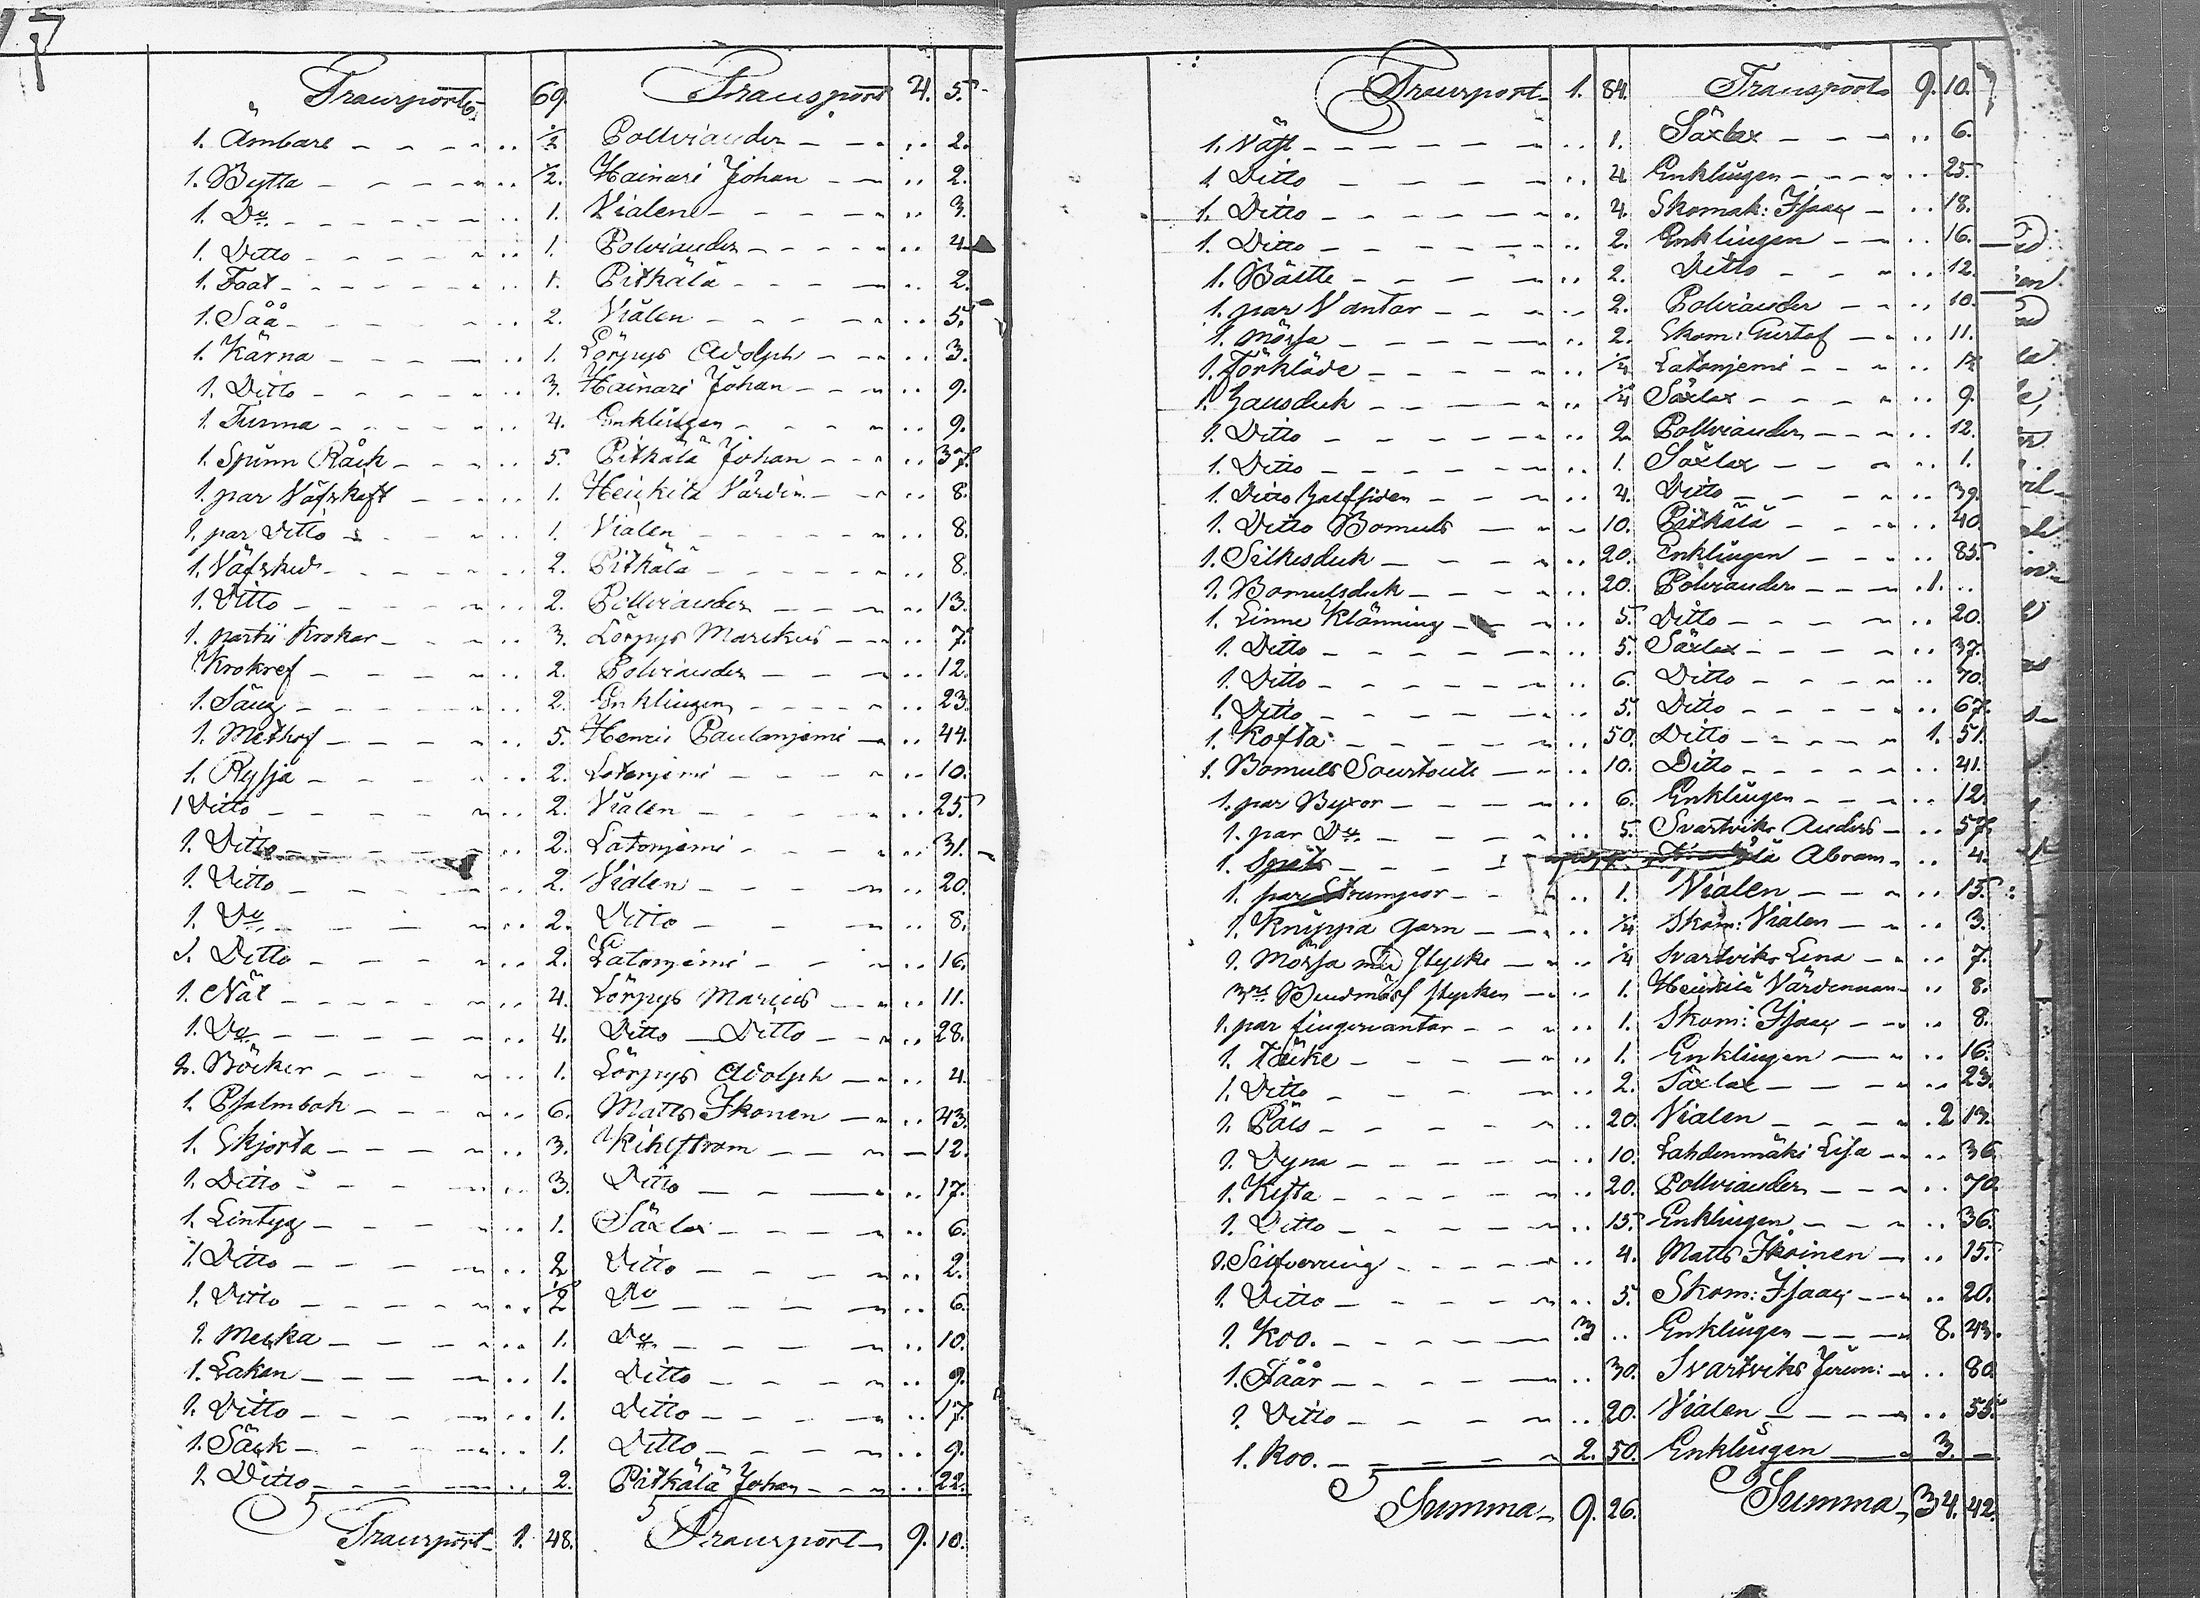 17
Transport 69. Transport 4. 5.
1. Ämbare - - - - .. ½ Pollviander - - - .. 2.
1. Bytta - - - - .. ½. Hainari Johan - - .. 2.
1. Do - - - - - .. 1. Vialen - - - - .. 3.
1. Ditto - - - - .. 1. Polviander - - - - .. 4.
1. Foat - - - - - .. 1. Pitkälä - - - - .. 2.
1. Såå - - - - - .. 2. Vialen - - - - .. 5.
1. Kärna - - - - .. 1. Lörpys Adolph - - .. 3.
1. Ditto - - - - .. 3. Hainari Johan - - - .. 9.
1. Tunna - - - - .. 4. Enklingen - - - - .. 9.
1. Spinn Råck - - - .. 5. Pitkälä Johan - - - .. 37.
1. par Väfskaft - - - .. 1. Heickilä Värdin - - .. 8.
1. par Ditto - - - .. 1. Vialen - - - - - .. 8.
1. Väfsked - - - - .. 2. Pitkälä - - - - - .. 8.
1. Ditto - - - - .. 2. Pollviander - - - .. 13.
1. partii Krokar - - - .. 3. Lörpys Marckus - - .. 7.
1. Krokref - - - - .. 2. Polviander - - - .. 12.
1. Säng - - - - - .. 2. Enklingen - - - - .. 23.
1. Metkrf - - - - .. 5. Henric Paulanjemi - .. 44.
1. Ryssja - - - - .. 2. Latonjemi - - - .. 10.
1 Ditto - - - - .. 2. Vialen - - - - .. 25.
1. Ditto - - - - .. 2. Latonjemi - - - .. 31.
1. Ditto - - - - .. 2. Vialen - - - - .. 20.
1. Do - - - - .. 2. Ditto - - - .. 8.
1. Ditto - - - - .. 2. Latonjemi - - - .. 16.
1. Nät - - - - - .. 4. Lörpys Marcus - - .. 11.
1. Do - - - - - .. 4. Ditto - Ditto - - .. 28.
2. Böcker - - - - .. 1. Lörpys Adolph - - .. 4.
1. Psalmbok - - - .. 6. Matts Ikonen - - .. 43.
1. Skjorta - - - - .. 3. Kihlstrom - - - 12.
1. Ditto - - - - .. 3. Ditto - - - .. 17.
1. Lintyg - - - - .. 1. Säxlax - - - - .. 6.
1. Ditto - - - - .. 2 Ditto - - - - .. 2.
1. Ditto - - - - .. ½ Do - - - - .. 6.
1. Mecka - - - - .. 1. Do - - - - .. 10.
1. Lakan - - - - .. 1. Ditto - - - - .. 9.
1. Ditto - - - - .. 1. Ditto - - - - .. 17.
1. Säck - - - - .. 1. Ditto - - - - .. 9.
1 Ditto - - - - .. 2. Pitkälä Johan - - - .. 22.
Transport - 1. 48. Transport - 9. 10.
Transport - 1. 84. Transport 9. 10.
1. Väst - - - - - .. 1. Säxlax - - - - .. 6.
1 Ditto - - - - .. 4 Enklingen - - - - .. 25.
1. Ditto - - - - .. 4. Skomak: Isaac - .. 18.
1. Ditto - - - - .. 2. Enklingen - - - .. 16.
1. Bälte - - - - .. 2. Ditto - - - .. 12.
1. par Vantar - - - .. 2. Polviander - - .. 10.
1. Mössa - - - - .. 2. Skom: Gustaf - - .. 11.
1. Förkläde - - - - .. ¼ Latonjemi - - - .. 12
1. Halsduk - - - - .. ¼ Säxlax - - - - .. 9.
1. Ditto - - - - .. 2. Pollviander - - - .. 12.
1. Ditto - - - - .. 1. Säxlax - - - - .. 1.
1. Ditto half siden - - - .. 4. Ditto - - - - .. 39.
1. Ditto Bomuls - - - 10. Pitkälä - - - .. 40.
1. Silkesduk - - - - .. 20. Enklingen - - - .. 85.
1. Bomulsduk - - - - .. 20. Polviander - - - .1. ..
1. Linne Klänning - - - .. 5. Ditto - - - - 20.
1. Ditto - - - - .. 5. Säxlax - - - - .. 37.
1. Ditto - - - - .. 6. Ditto - - - - .. 70.
1. Ditto - - - - .. 5. Ditto - - - - .. 67.
1. Kofta - - - - .. 50. Ditto - - - - 1. 51.
1. Bomuls Sourtoute - - .. 10. Ditto - - - - .. 41.
1. par Byxor - - - .. 6. Enklingen - - - .. 12.
1. par Do - - - - .. 5. Svartviks Anders - .. 57.
1. - - - - Abram - .. 4.
1. par Strumpor - - .. 1. Vialen - - - .. 15.
1. Knippa garn - - .. ¼ Skom: Vialen - - .. 3.
1. Mössa med stycke - .. ¼ Svartviks Lena - - .. 7.
3ne Bindmöss stycken - .. 1. Heickilä Värdinnan - .. 8.
1. par fingervantar - - .. 1. Skom: Isaac - - .. 8.
1. Täcke - - - - .. 1. Enklingen - - .. 16.
1. Ditto - - - - .. 2. Säxlax - - - - .. 23.
1. Päls - - - - .. 20. Vialen - - - - .2 13.
1. Dyna - - - - .. 10. Lahdenmäki Lisa - .. 36.
1. Kista - - - - .. 20. Pollviander - - - .. 70.
1. Ditto - - - - .. 15. Enklingen - - - .. 36.
1. Silfverring - - - - .. 4. Matts Ikoinen - .. 15.
1. Ditto - - - - .. 5. Skom: Isaac - - .. 20.
1. Koo. - - - - 3 .. Enklingen - - - 8. 43.
1. Fåår - - - - .. 30. Svartviks - .. 80.
1. Ditto - - - - .. 20. Vialen - - - - .. 55.
1. Koo. - - - - 2. 50. Enklingen - - 3. -
Summa - 9. 26. Summa - 34. 42.